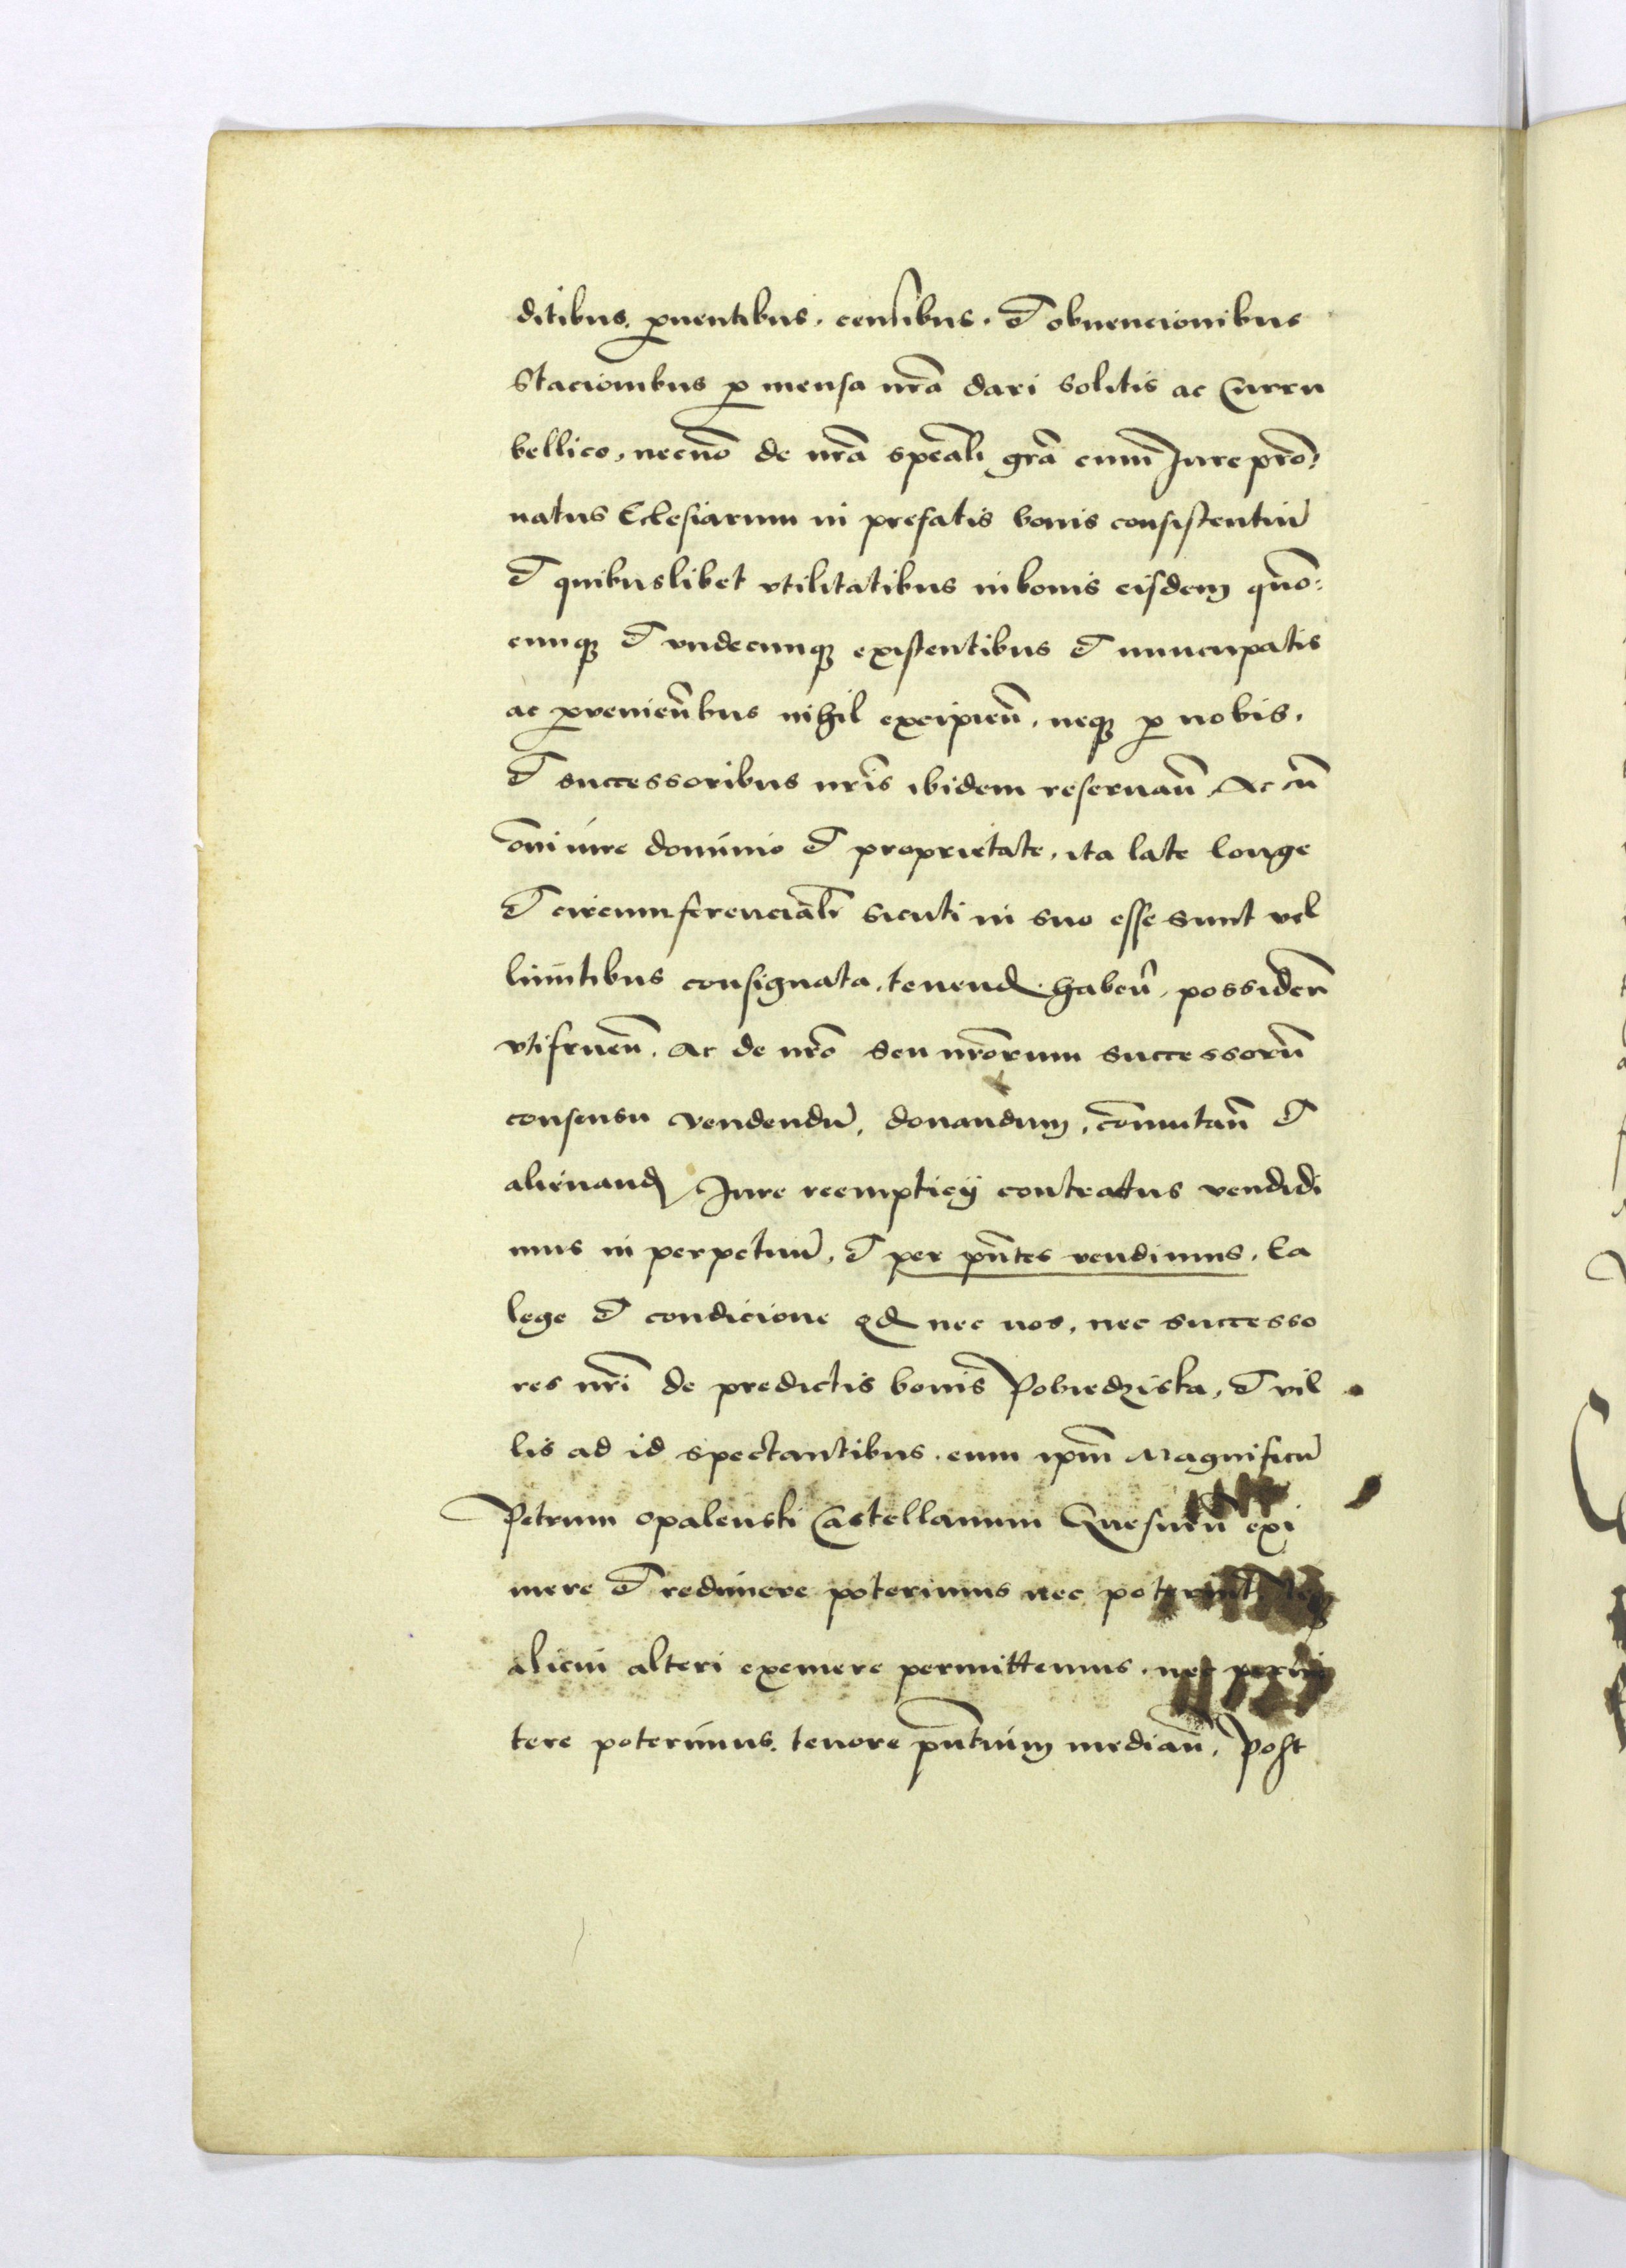 ditibus, ꝓuentibus, censibus, et obuencionibus
Stacionibus ꝓ mensa nrã dari solitis ac Curru
bellico, necnõ de nrã speãli grã cum Jure prõ⸗
natus Eclesiarum in prefatis bonis consistentiũ
et quibuslibet vtilitatibus in bonis eisdem quõ⸗
cunqꝫ et vndecunqꝫ existentibus et nuncupatis
ac ꝓvenieñbus nihil excipieñ, neqꝫ ꝓ nobis,
et successoribus nrĩs ibidem reseruañ, Ac cũ
õni iure dominio et proprietate, ita late longe
et circumferenciałr sicuti in suo esse sunt vel
limitibus consignata, tenend. habeñ, possideñ
vtifrueñ, ac de nrõ seu nrõrum successorũ
consensu vendendũ, donandum, cõmutañ et
alienand, Jure reempticij contractus vendidi
mus in perpetuũ, et per pñtes vendimus, Ea
lege et condicione qd nec nos, nec successo
res nrĩ de predictis bonis Pobiedziska, et vil
lis ad id spectantibus, eum ipm̃ Magnificũ
Petrum opalenski Castellanum Gnesnẽn exi
mere et redimere poterimus nec poterunt,
alicui alteri exemere permittemus, nec permi
tere poterimus, tenore pñtium mediañ, Post